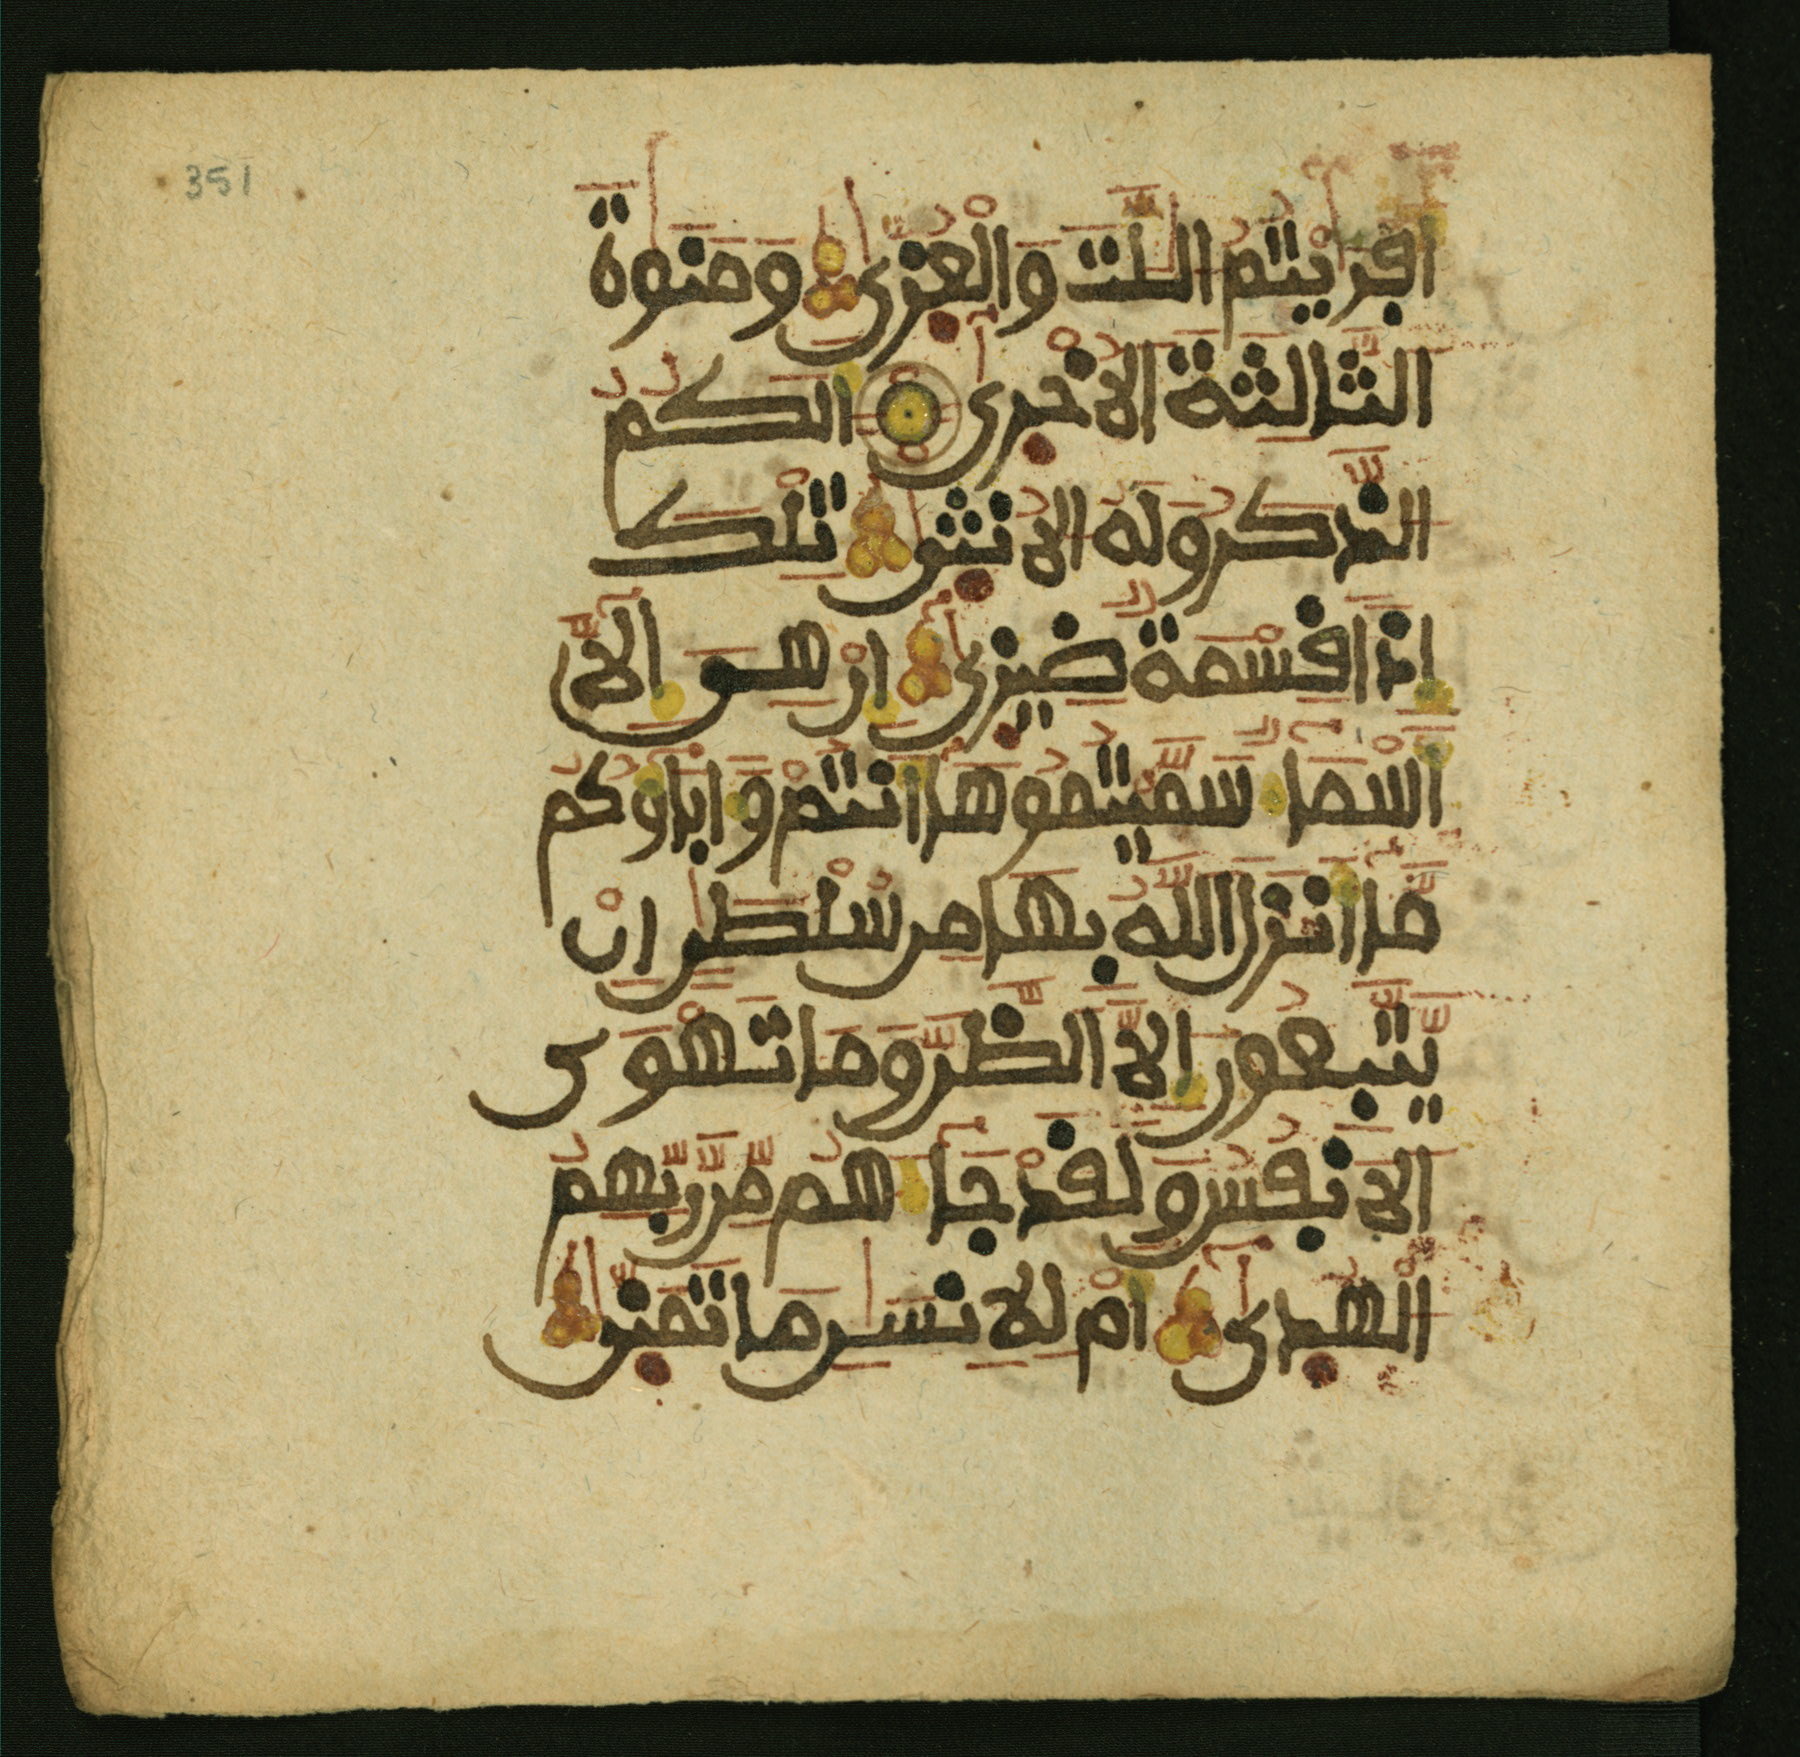 351
اَفَرَٰيْتُمُ اللَّٰتَ وَالْعُزّٜىٰ وَمَنَوٰةَ
الثَّالِثَةَ الُاخْرٜىٰٓ اَلَكُمُ
الذَّكَرُ وَلَهُ الُانثٜىٰ تِلْكَ
إِذاً قِسْمَةٌ ضِيزٜىٰٓ إِنْ هِىَ إِلَّآ
أَسْمَآءٌ سَمَّيْتُمُوهَآ أَنتُمْ وَءَابَآؤُكُم
مَّآ أَنزَلَ اللَّهُ بِهَا مِن سُلْطَٰنٍ إِنْ
يَّتَّبِعُونَ إِلَّا الظَّنَّ وَمَا تَهْوَى
الَانفُسُ وَلَقَدْ جَآءَهُم مِّن رَّبِّهِمُ
الْهُدٜىٰٓ أَمْ لِلِانسَٰنِ مَا تَمَنّٜىٰ